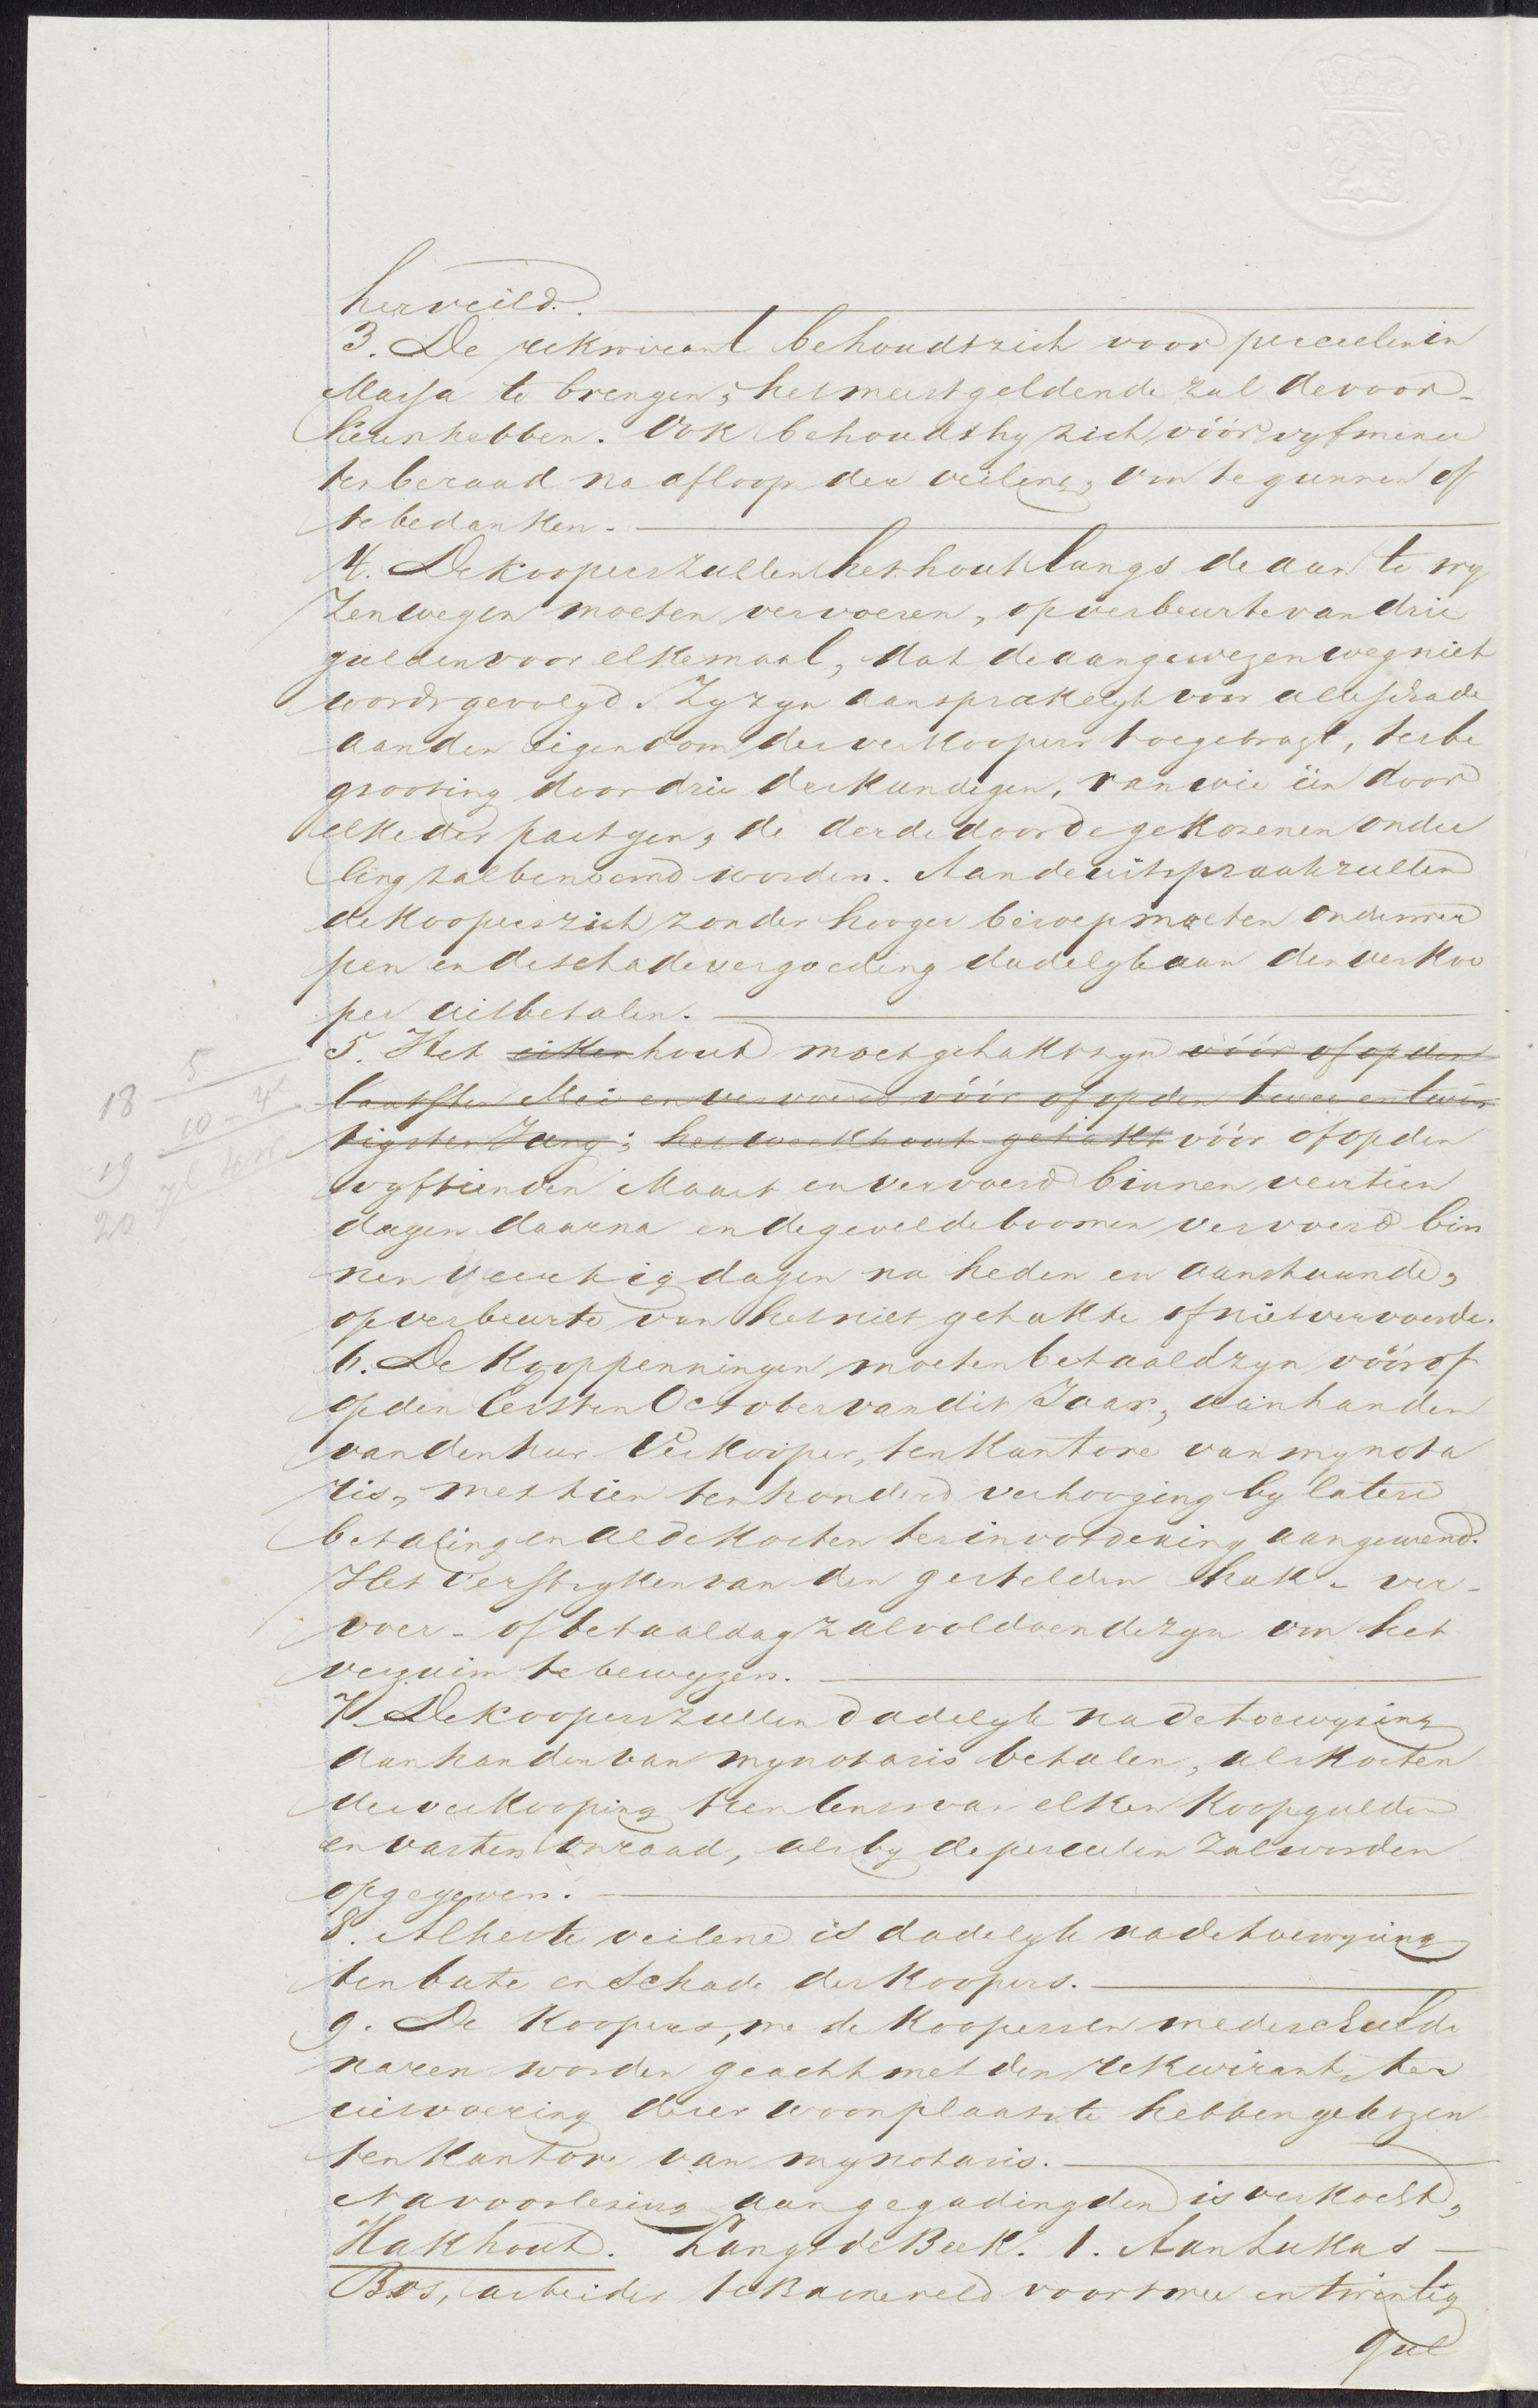 herveild.
3. De rekwirant behoudt zich voor perceelen in
Massa te brengen; het meest geldende zal de voor-
keur hebben. Ook behoudt hy zich vóór vyf minu
ten beraad na afloop der veiling, om te gunnen of
te bedanken.
4. De koopers zullen het hout langs de aan te wy
zen wegen moeten vervoeren, op verbeurte van drie
gulden voor elke maal, dat de aangewezen weg niet
wordt gevolgd. Zy zyn aansprakelyk voor alle schade
aan den eigendom des verkoopers toegebragt, ter be
grooting door drie deskundigen, van wie één door
elke der partyen, de derde door de gekozenen onder
ling zal benoemd worden. Aan de uitspraak zullen
de koopers zich zonder hooger beroep moeten onderwer
pen en de schadevergoeding dadelyk aan den verkoo
per uitbetalen.
5. Het eiken hout moet gehakt zyn vóór of op den
laatsten Mei en vervoerd vóór of op den twee en twin
tigsten Juny; het weekhout gehakt vóór of op den
vyftienden Maart en vervoerd binnen veertien
dagen daarna en de gevelde boomen vervoerd bin
nen veertig dagen na heden en aanstaande,
op verbeurte van het niet gehakte of niet vervoerde.
6. De kooppenningen moeten betaald zyn vóór of
op den Eersten October van dit Jaar, aan handen
van den heer Verkooper, ten kantore van my nota
ris, met tien ten honderd verhooging by latere
betaling en al de kosten ter invordering aangewend.
Het verstryken van den gestelden hak- ver-
voer- of betaaldag zal voldoende zyn om het
verzuim te bewyzen.
7. De koopers zullen dadelyk na de toewyzing
aan handen van my notaris betalen, als kosten
der verkooping tien cents van elken koopgulden
en vasten onraad, als by de perceelen zal worden
opgegeven.
8. Alhets te veilene is dadelyk na de toewyzing
ten bate en Schade der koopers.
9. De koopers, mede koopers en medeschulde
naren worden geacht met den rekwirant, ter
uitvoering dezer woonplaats te hebben gekozen
ten kantore van my notaris.
Na voorlezing aan gegadingden is verkocht,
Hakhout. Langs de Beek. 1. Aan Lukas
Bos, arbeider te Barneveld voor twee en twintig
gul
5
18
10 - 4
19
20